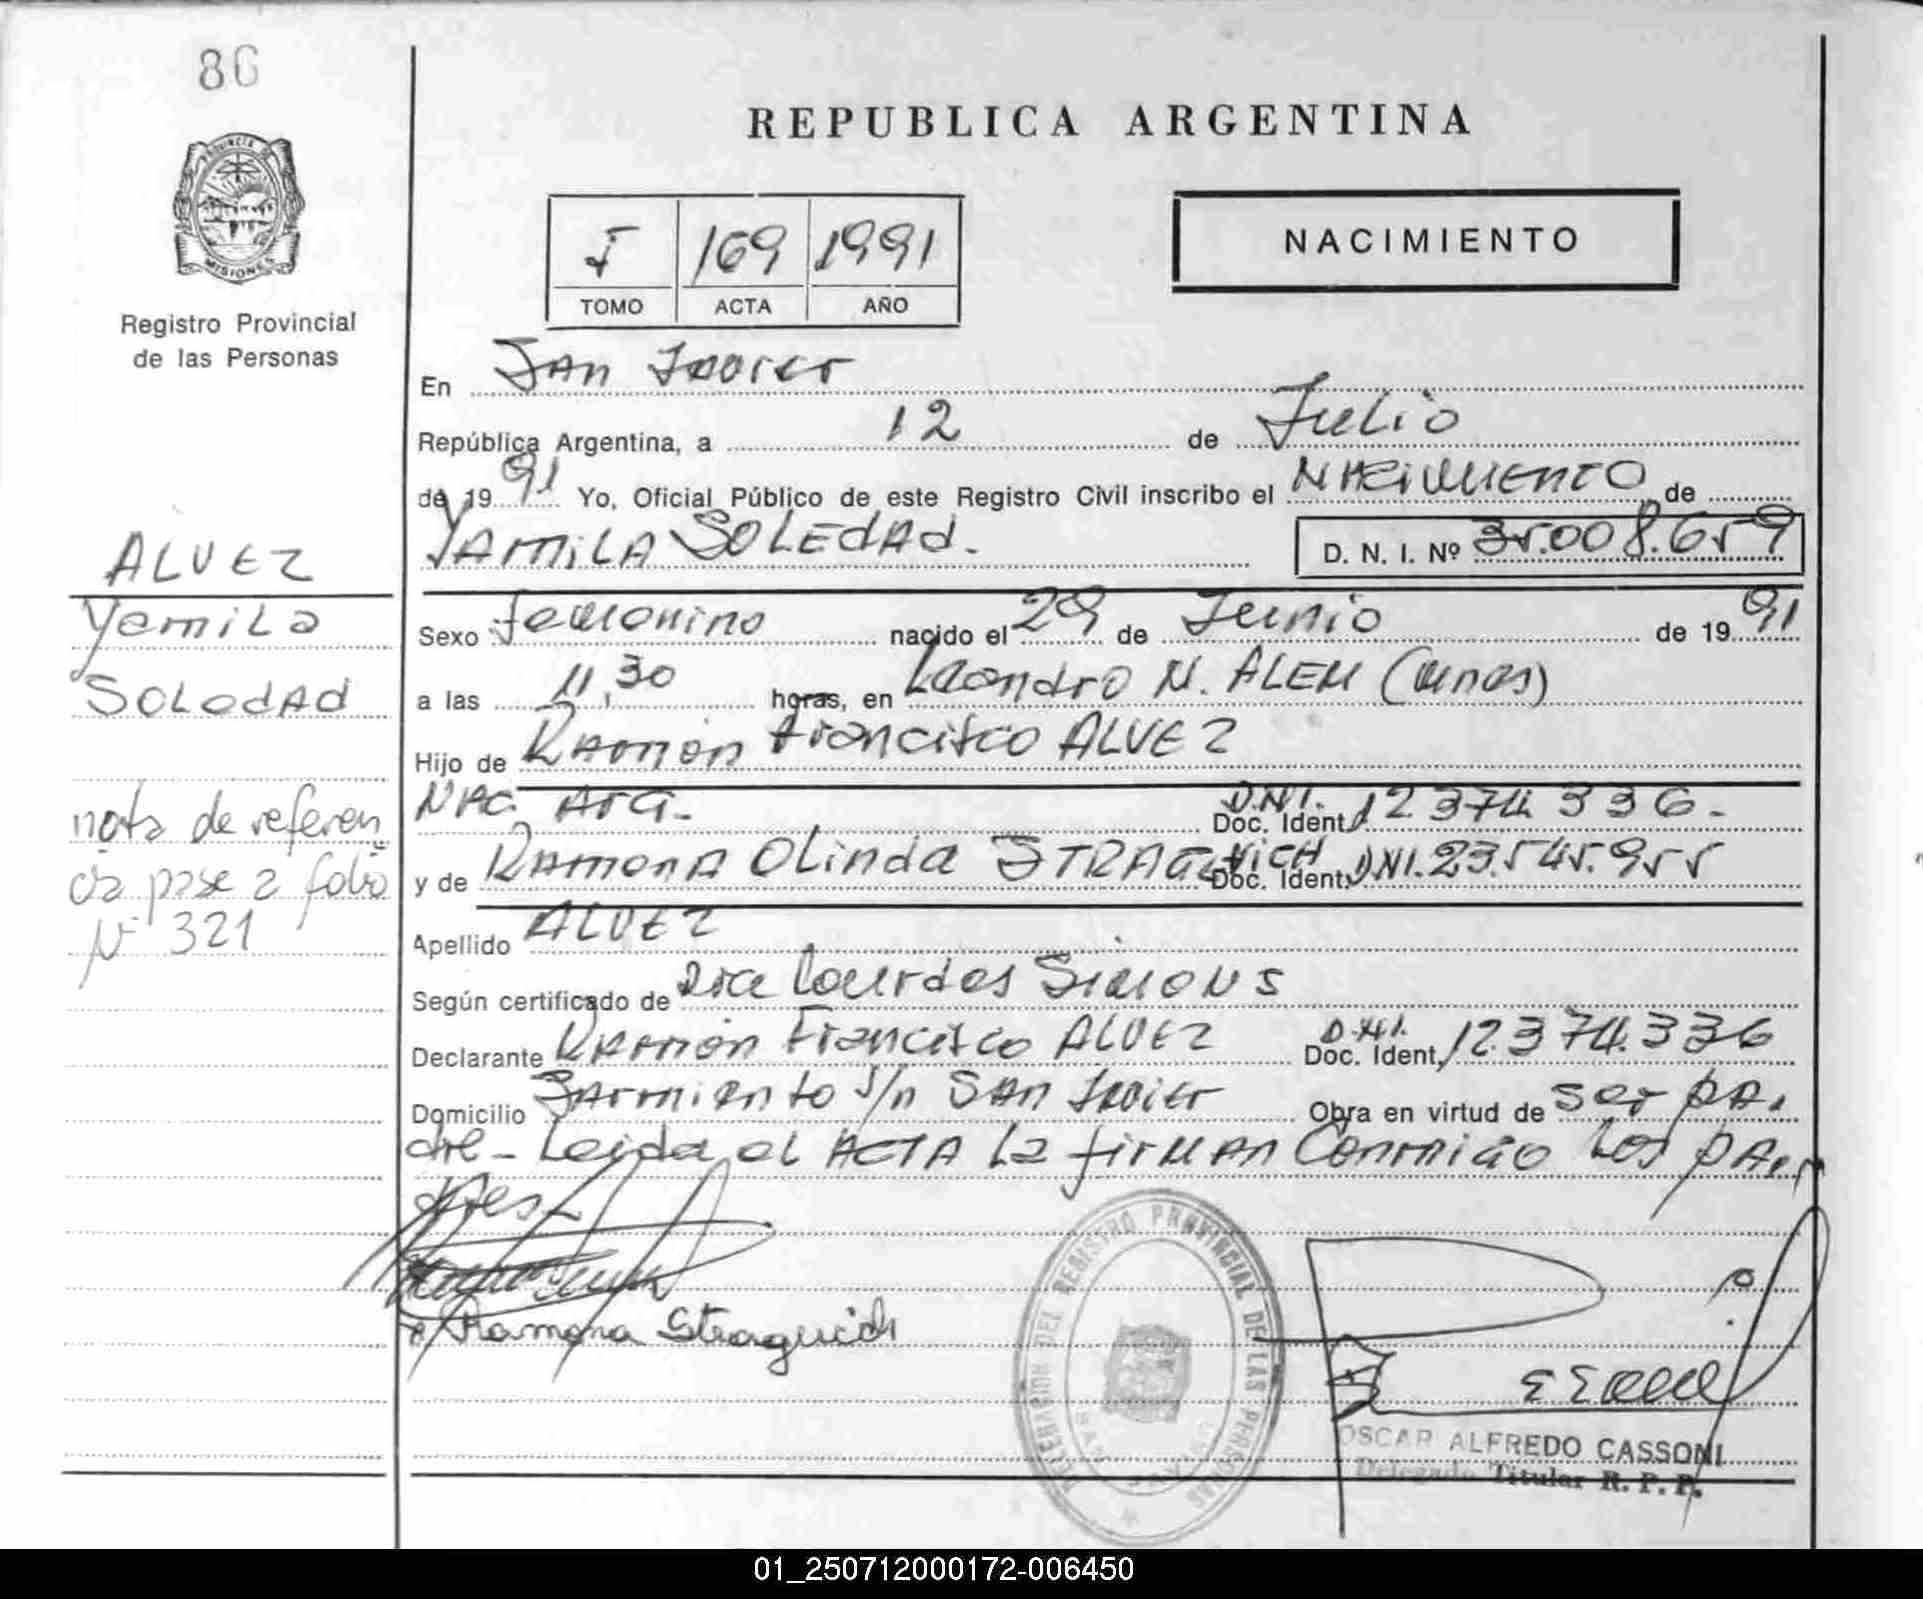 86
PROVINCIA DE
MISIONES
Registro Provincial
de las Personas
REPUBLICA ARGENTINA
I 169 1991
TOMO ACTA AÑO
NACIMIENTO
En San Javier
República Argentina, a 12 de Julio
de 1991 Yo, Oficial Público de este Registro Civil inscribo el NACIMIENTO de
YAMILA SOLEDAD. D. N. I. Nº 35.008.659
Sexo femenino nacido el 29 de Junio de 1991
a las 11,30 horas, en Leandro N. ALEM (mnes)
Hijo de RAMON Francisco ALVEZ
NAC. ArG. D.N.I. Doc. Ident. 12 374 336.-
y de RAMONA Olinda STRAGUICH Doc. Ident. DNI. 23.545.955
Apellido ALVEZ
Según certificado de Dra Lourdes Simons
Declarante RAMON Francisco ALVEZ D.N.I. Doc. Ident. 12.374.336
Domicilio Sarmiento s/n SAN Javier Obra en virtud de ser pa-
dre - Leida el ACTA La firman Conmigo Los PA-
dres.-
Ramona Straguich
DELEGACION DEL REGISTRO PROVINCIAL DE LAS PERSONAS
SAN JAVIER
OSCAR ALFREDO CASSONI
Delegado Titular R. P. P.
ALVEZ
Yamila
SOLEDAD
nota de referen
cia pase a folio
Nº 321
01_250712000172-006450